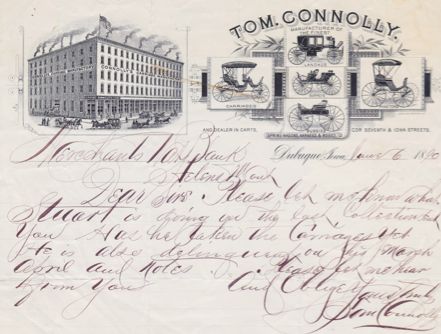 TOM. CONNOLLY.
MANUFACTURER OF
THE FINEST
LANDAUS
CARRIAGES
BUGGIES
AND DEALER IN CARTS,
SPRING WAGONS, HARNESS & ROBES
COR SEVENTH & IOWA STREETS.
CONNOLLY'S
Dubuque, Iowa, June 6 1890
Merchants Nat Bank
Helena Mont
Dear Sirs Please let me know what
Stuart is doing on the last collection sent
You Has he taken the Carriages Yet
He is also delinquent on his March
April and Notes Please let me hear
from You And Oblige Yours Truly
Tom Connolly